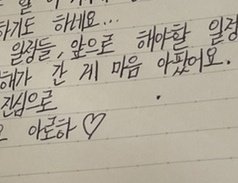 하기도 하네요...
일정들, 앞으로 해야할 일정
해가 간 게 마음 아팠어요.
진심으로
아로하♡